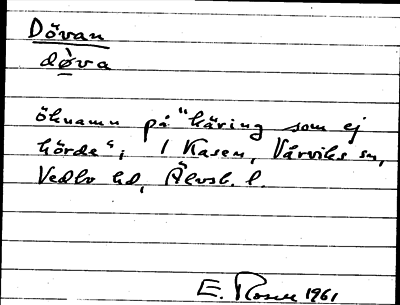 Dövan
dø̀va
öknamn på "käring som ej
hörde"; i Kasen, Värviks sn,
Vedbo hd, Älvsb. l.
E. Rosell 1961